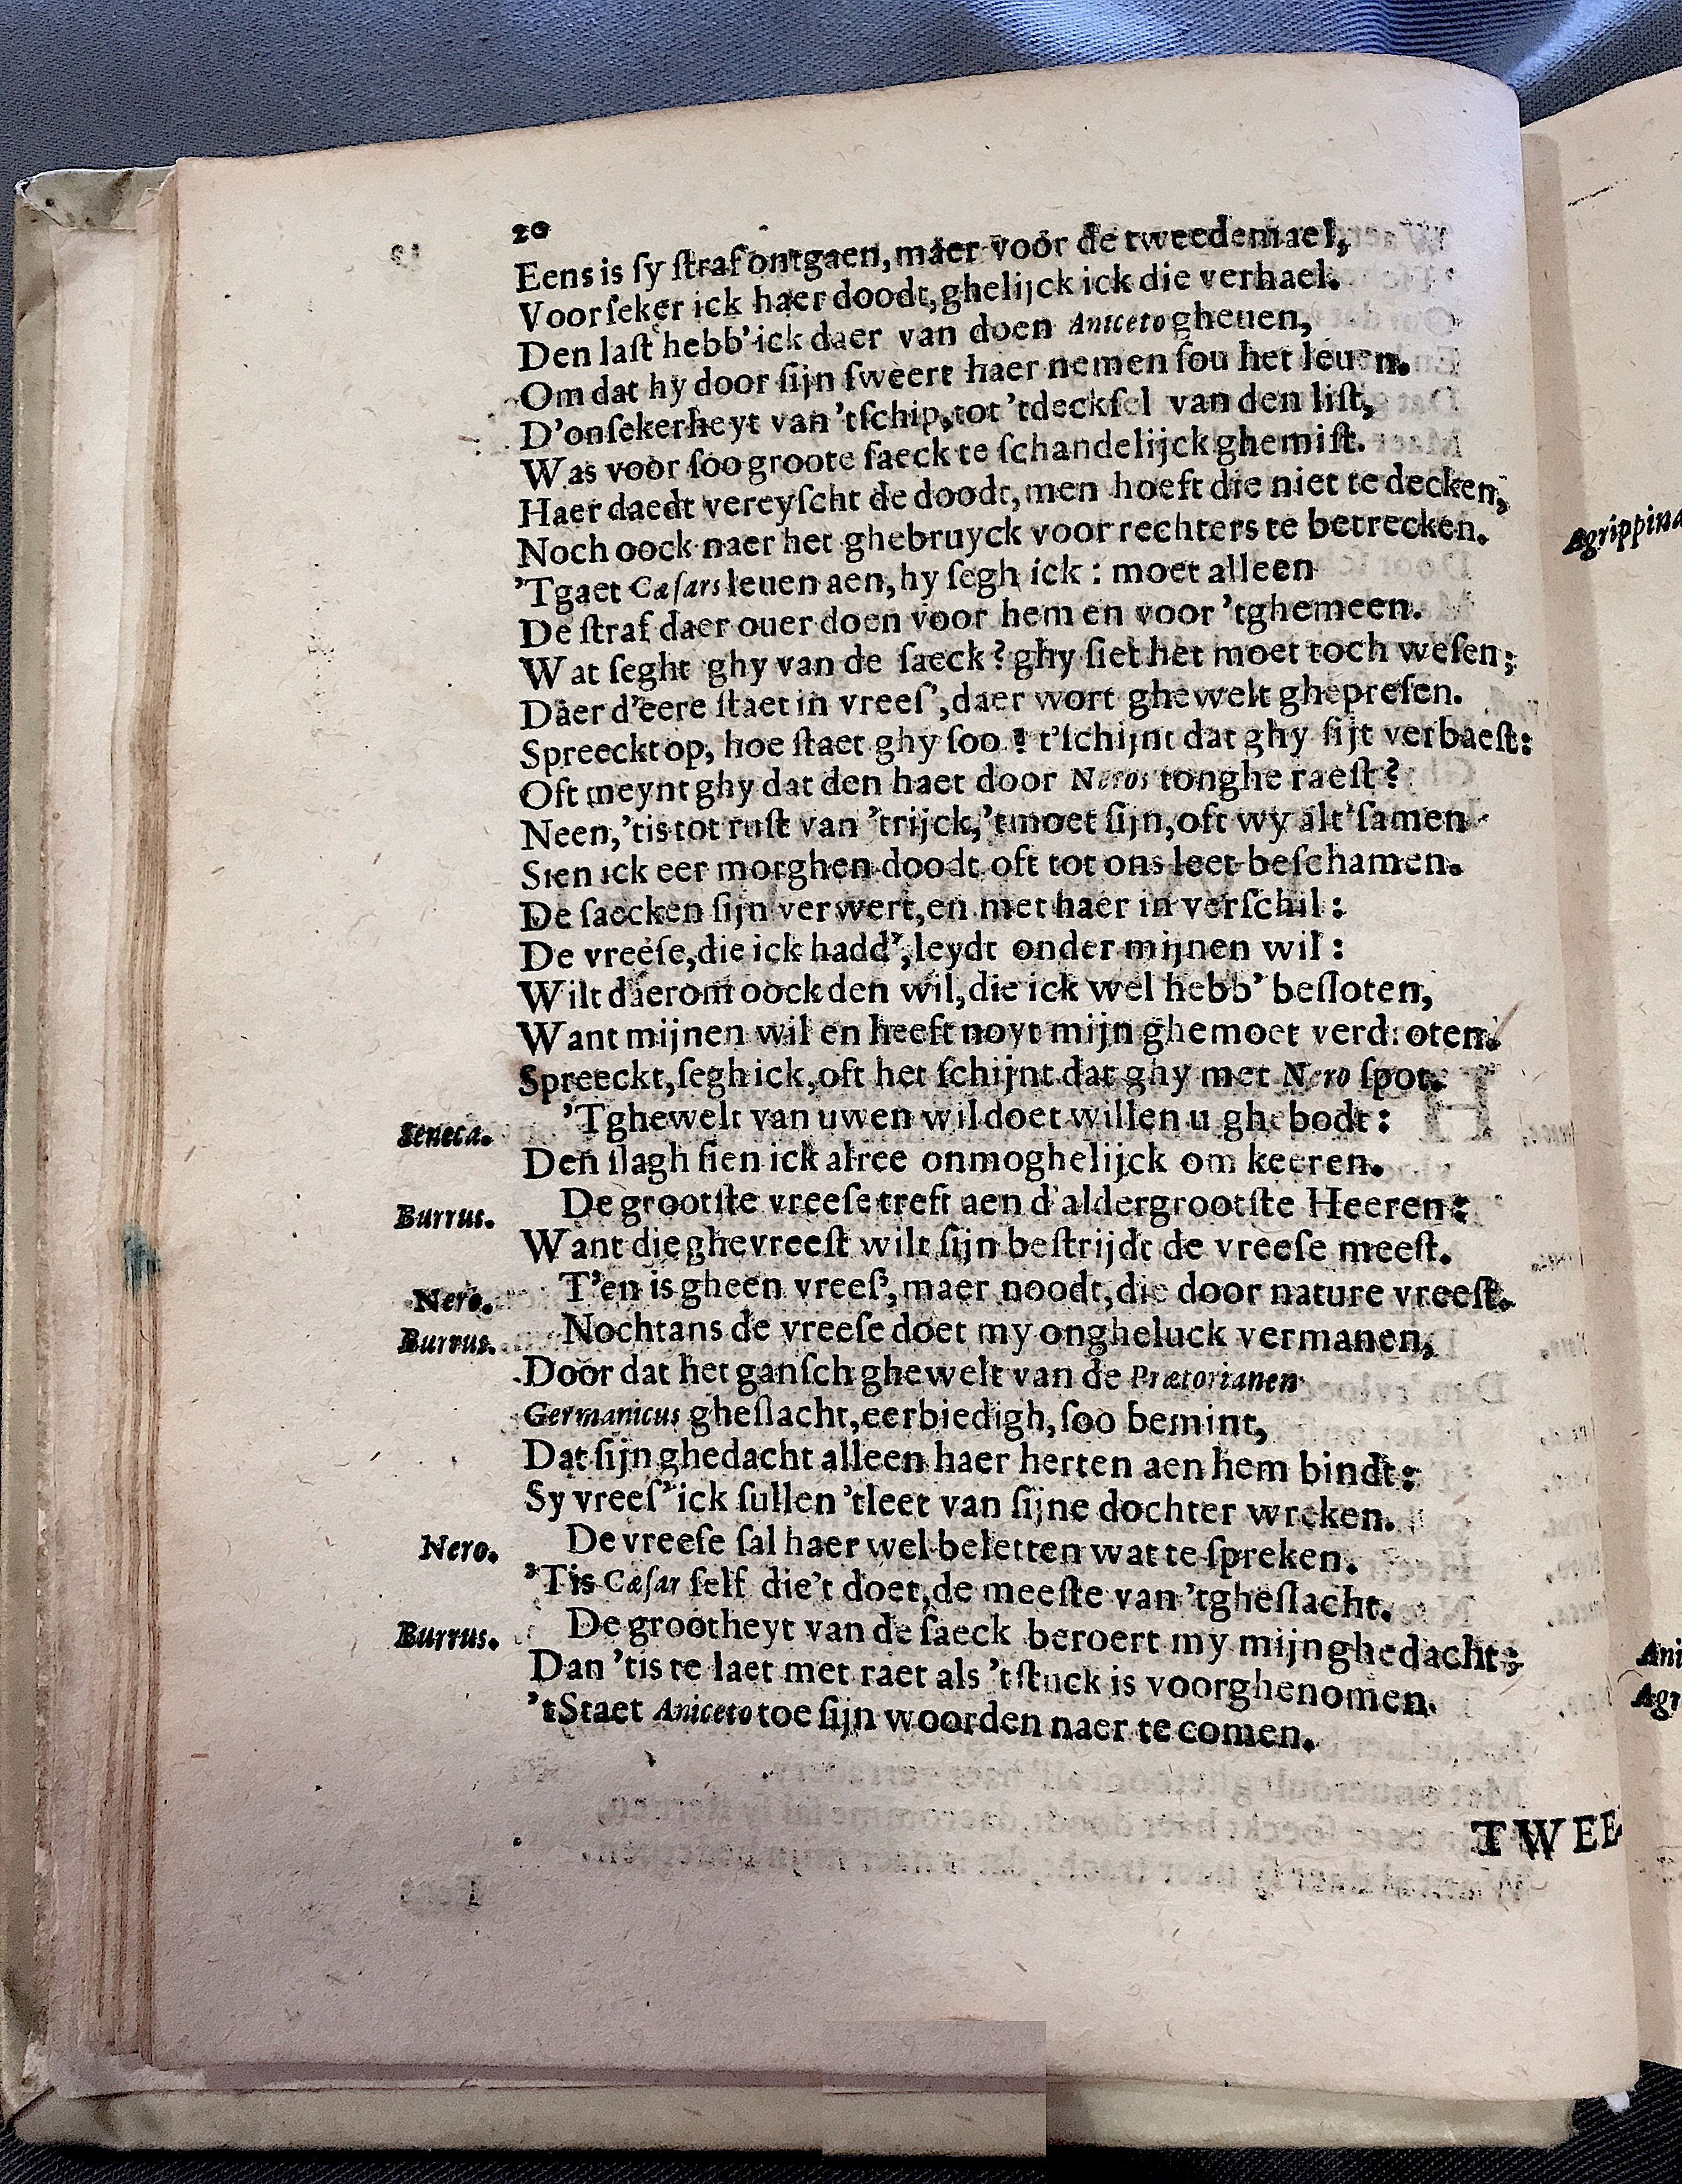 20
Eens is sy straf ontgaen, maer voor de tweedemael,
Voorseker ick haer doodt, ghelijck ick die verhael.
Den last hebb' ick daer van doen Aniceto gheuen,
Om dat hy door sijn sweert haer nemen sou het leuen.
D'onsekerheyt van 'tschip, tot 'tdecksel van den list,
Was voor soo groote saeck te schandelijck ghemist.
Haer daedt vereyscht de doodt, men hoeft die niet te decken,
Noch oock naer het ghebruyck voor rechters te betrecken.
'Tgaet Cæsars leuen aen, hy segh ick : moet alleen
De straf daer ouer doen voor hem en voor 'tghemeen.
Wat seght ghy van de saeck ? ghy siet het moet toch wesen;
Daer d'eere staet in vrees', daer wort ghewelt ghepresen.
Spreeckt op, hoe staet ghy soo ? t'schijnt dat ghy sijt verbaest:
Oft meynt ghy dat den haet door Neros tonghe raest ?
Neen, 'tis tot rust van 'trijck, 'tmoet sijn, oft wy alt'samen
Sien ick eer morghen doodt oft tot ons leet beschamen.
De saecken sijn verwert, en met haer in verschil :
De vreese, die ick hadd', leydt onder mijnen wil :
Wilt daerom oock den wil, die ick wel hebb' besloten,
Want mijnen wil en heeft noyt mijn ghemoet verdroten.
Spreeckt, segh ick, oft het schijnt dat ghy met Nero spot.
Seneca. 'Tghewelt van uwen wil doet willen u ghebodt :
Den slagh sien ick alree onmoghelijck om keeren.
Burrus. De grootste vreese treft aen d'aldergrootste Heeren :
Want die ghevreest wilt sijn bestrijdt de vreese meest.
Nero. T'en is gheen vrees', maer noodt, die door nature vreest.
Burrus. Nochtans de vreese doet my ongheluck vermanen,
Door dat het gansch ghewelt van de Prætorianen
Germanicus gheslacht, eerbiedigh, soo bemint,
Dat sijn ghedacht alleen haer herten aen hem bindt :
Sy vrees' ick sullen 'tleet van sijne dochter wreken.
Nero. De vreese sal haer wel beletten wat te spreken.
'Tis Cæsar self die't doet, de meeste van 'tgheslacht.
Burrus. De grootheyt van de saeck beroert my mijn ghedacht ;
Dan 'tis te laet met raet als 'tstuck is voorghenomen.
'tStaet Aniceto toe sijn woorden naer te comen.
TWEE
Agrippina
Ani
Agr